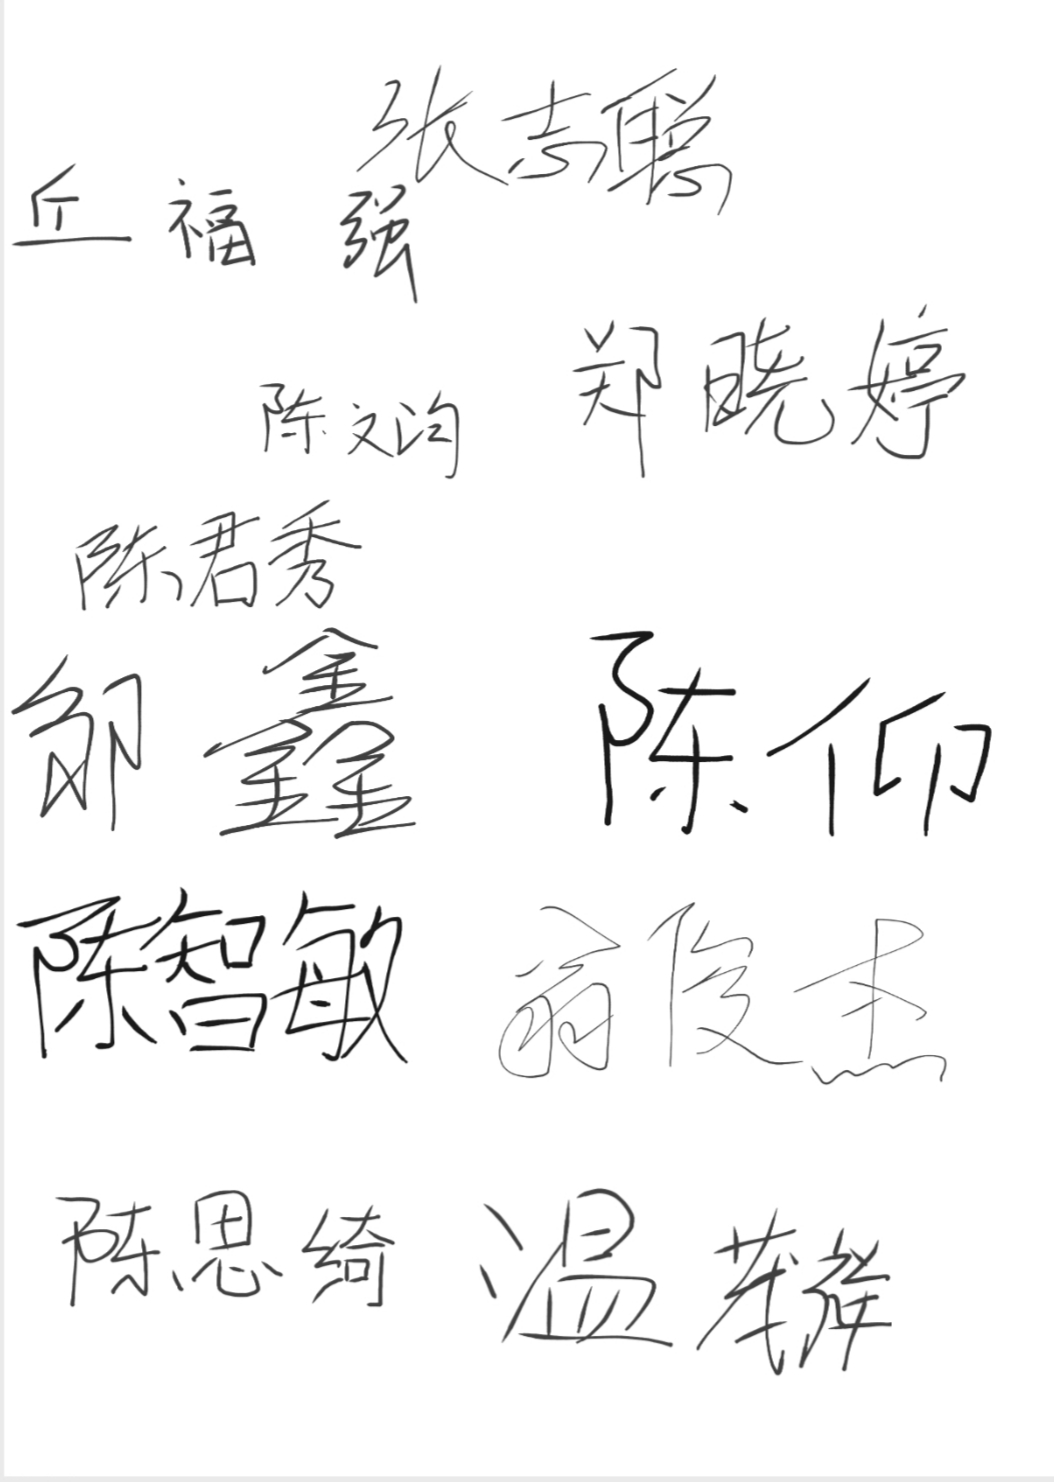 张志聪
丘福强
郑晓婷
陈文均
陈君秀
邹鑫
陈仰
陈智敏
翁俊杰
陈思绮
温茂